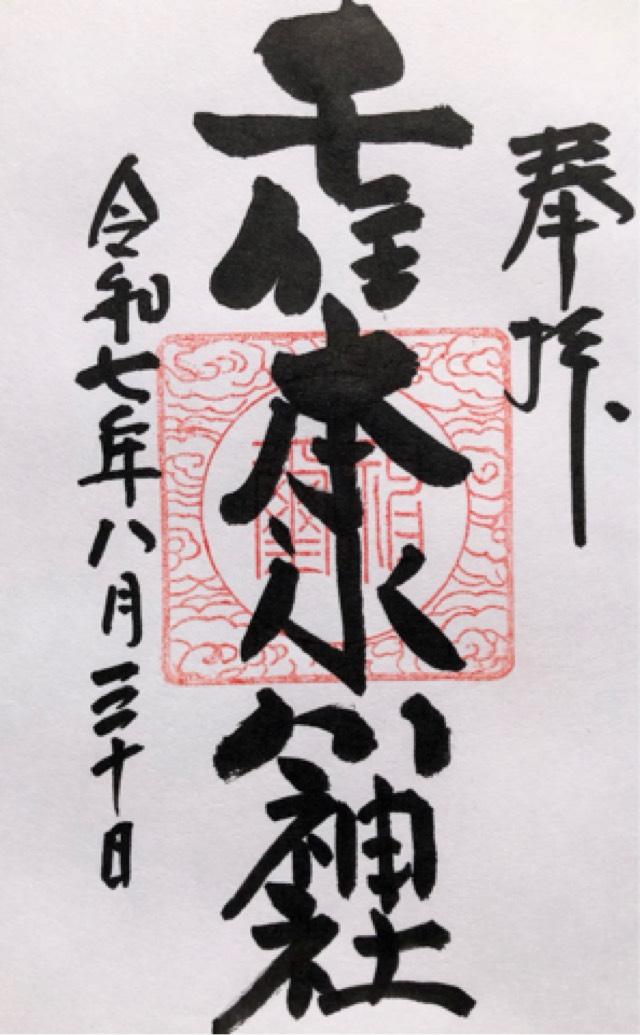 奉拝
千住本氷川神社
令和七年八月三十日